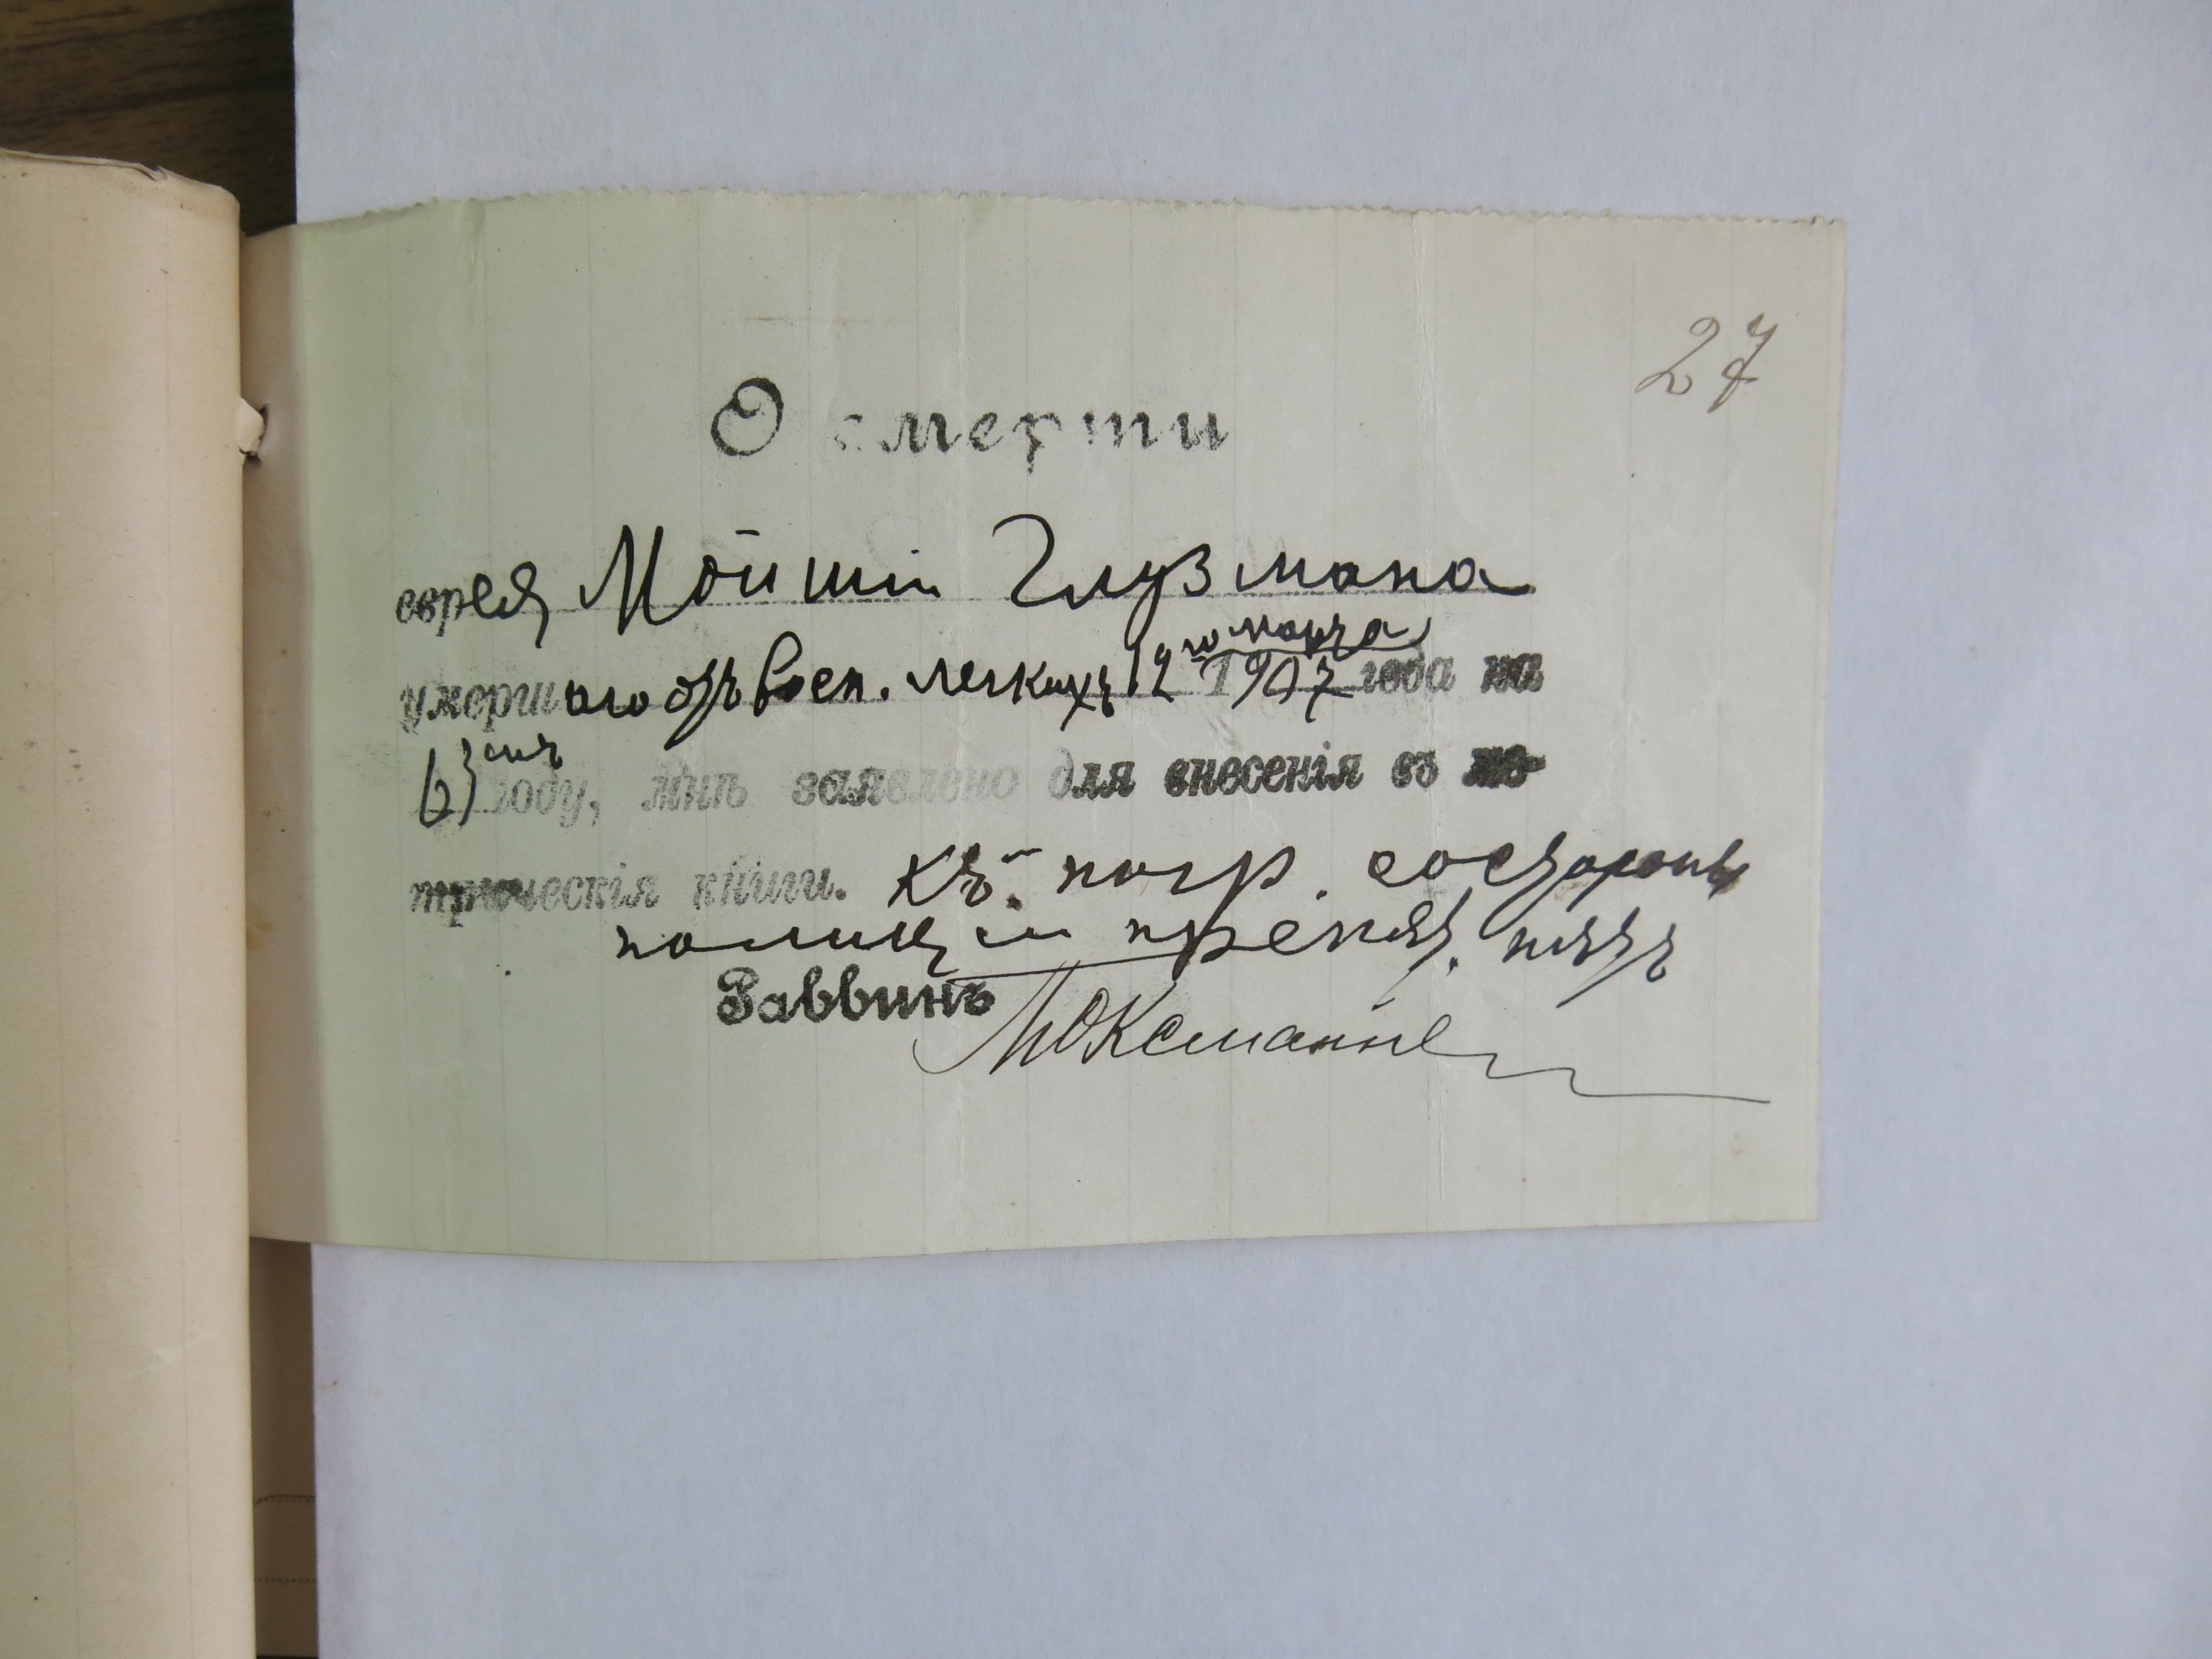 27
О смерти
еврея Мойши Глузмана
умершаго отъ восп. легкихъ 12го марта 1907 года на
63 году, мнѣ заявлено для внесенія въ ме
трическія книги. Къ погр. со стороны
полиціи препят. нѣтъ
Раввинъ